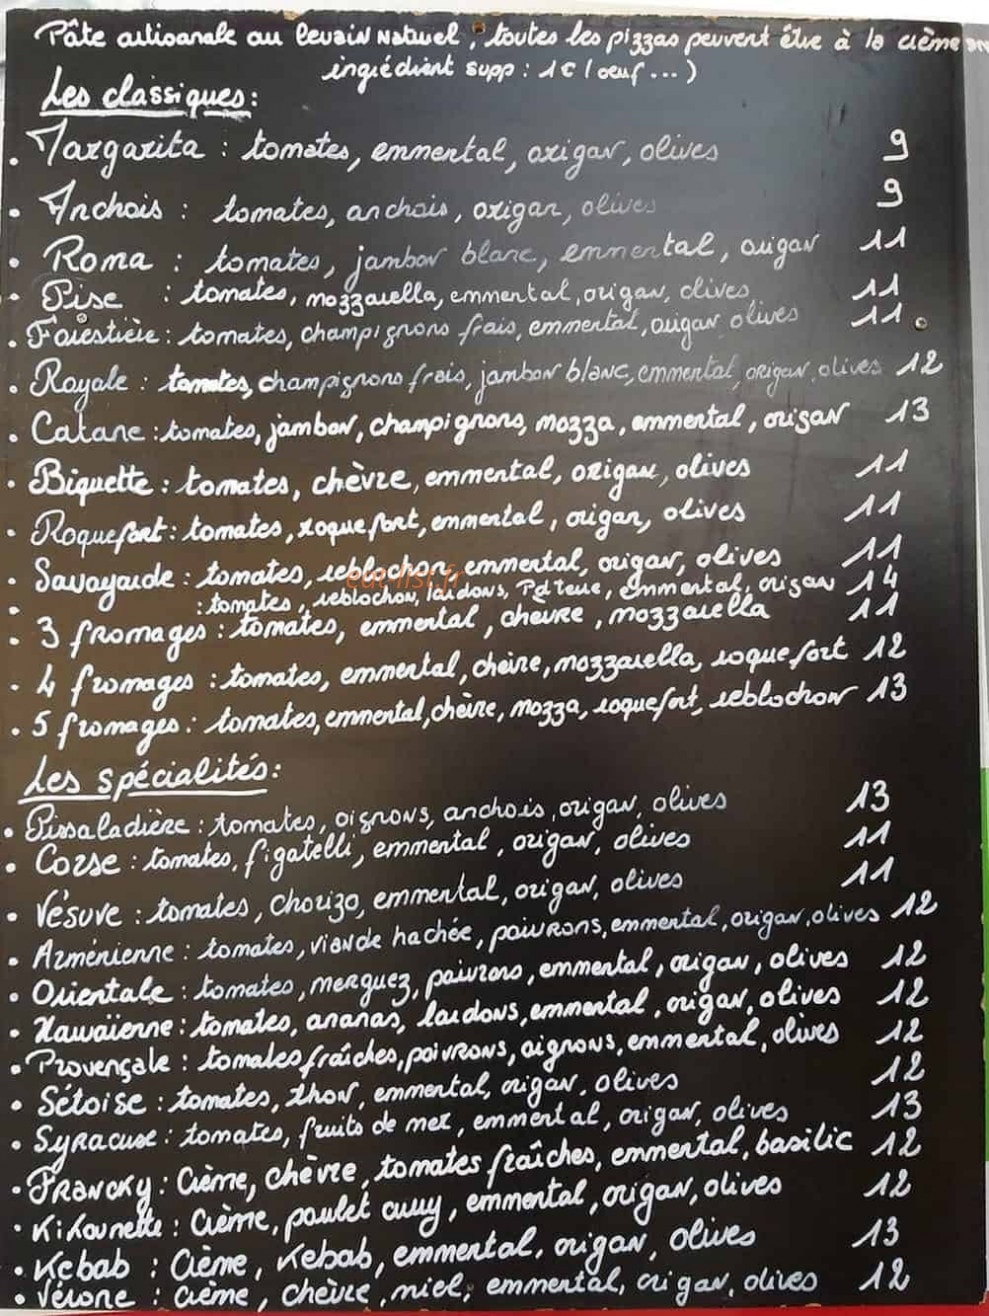 Pâte artisanale au levain Naturel, toutes les pizzas peuvent être à la crème
ingrédient supp : 1€ (oeuf...)
Les classiques :
• Margarita : tomates, emmental, origan, olives 9
• Anchois : tomates, anchois, origan, olives 9
• Roma : tomates, jambon blanc, emmental, origan 11
• Pise : tomates, mozzarella, emmental, origan, olives 11
• Forestière : tomates, champignons frais, emmental, origan olives 11
• Royale : tomates, champignons frais, jambon blanc, emmental, origan, olives 12
• Catane : tomates, jambon, champignons, mozza, emmental, origan 13
• Biquette : tomates, chèvre, emmental, origan, olives 11
• Roquefort : tomates, roquefort, emmental, origan, olives 11
• Savoyarde : tomates, reblochon, emmental, origan, olives 11
• : tomates, reblochon, lardons, P de Terre, emmental, origan 14
• 3 fromages : tomates, emmental, chèvre, mozzarella 11
• 4 fromages : tomates, emmental, chèvre, mozzarella, roquefort 12
• 5 fromages : tomates, emmental, chèvre, mozza, roquefort, reblochon 13
Les spécialités :
• Pissaladière : tomates, oignons, anchois, origan, olives 13
• Corse : tomates, figatelli, emmental, origan, olives 11
• Vésuve : tomates, chorizo, emmental, origan, olives 11
• Arménienne : tomates, viande hachée, poivrons, emmental, origan, olives 12
• Orientale : tomates, merguez, poivrons, emmental, origan, olives 12
• Hawaïenne : tomates, ananas, lardons, emmental, origan, olives 12
• Provençale : tomates fraîches, poivrons, oignons, emmental, olives 12
• Sétoise : tomates, thon, emmental, origan, olives 12
• Syracuse : tomates, fruits de mer, emmental, origan, olives 13
• Francky : Crème, chèvre, tomates fraîches, emmental, basilic 12
• Kikounette : Crème, poulet curry, emmental, origan, olives 12
• Kebab : Crème, Kebab, emmental, origan, olives 13
• Vérone : crème, chèvre, miel, emmental, origan, olives 12
eat-list.fr